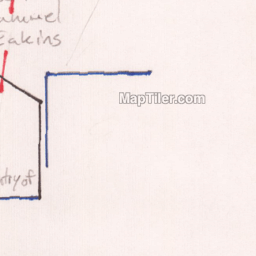 Eakins
MapTiler.com
try of